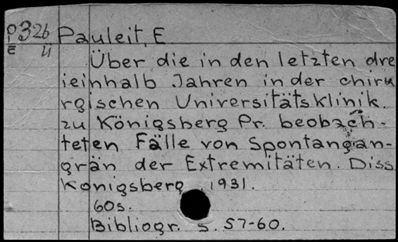 D 326 Pauleit, E
E ü
Über die in den letzten dre
ieinhalb Jahren in der chiru
rgischen Universitätsklinik
zu Königsberg Pr. beobach-
teten Fälle von Spontangan-
grän der Extremitäten. Diss
Königsberg 1931.
60s.
Bibliogr. s. 57-60.